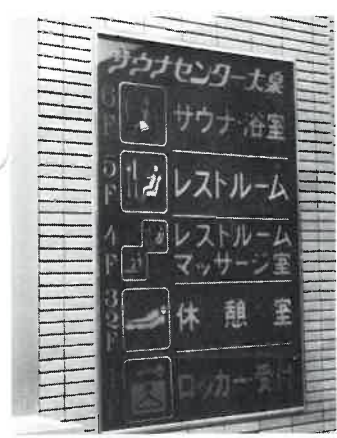 サウナセンター大泉
6F サウナ・浴室
5F レストルーム
4F レストルーム
マッサージ室
3 2F 休憩室
ロッカー・受付